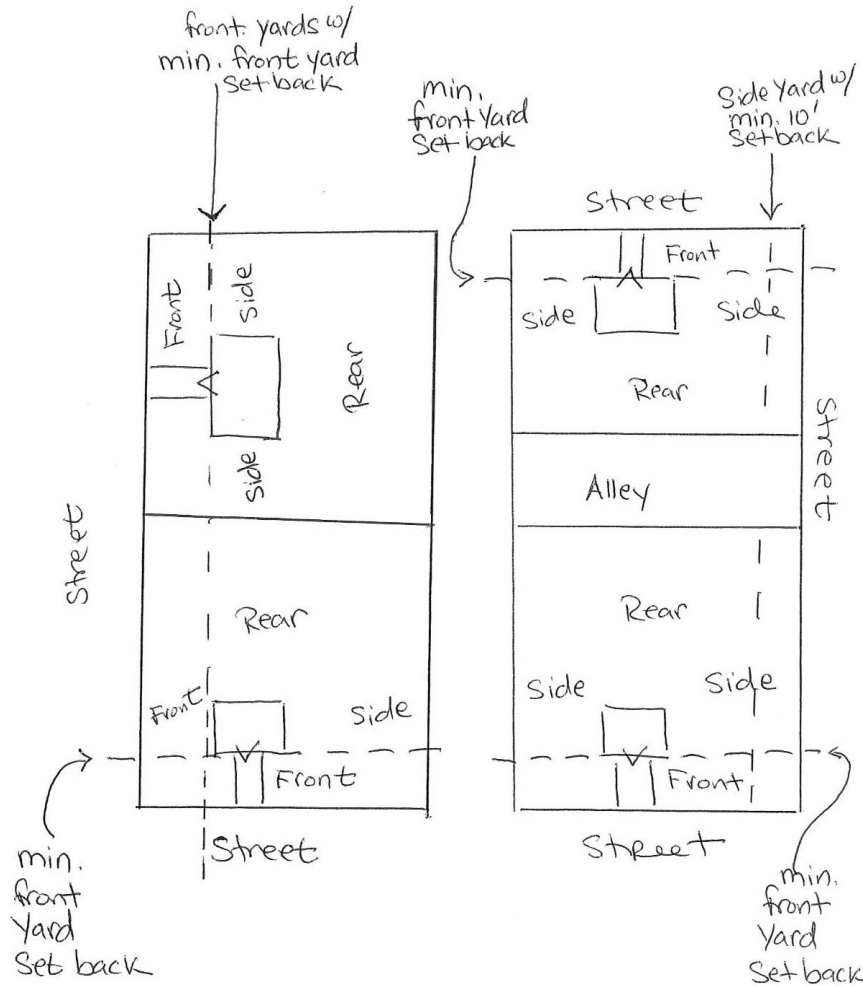 front yards w/
min. front yard
Setback
min.
front Yard
Set back
Side Yard w/
min. 10'
Setback
Street
Front
Side
Side
Rear
Alley
Street
Rear
Side
Side
Front
Street
min.
front
Yard
Setback
Front
Side
Rear
Side
Street
Rear
Front
Side
Front
Street
min.
front
Yard
Set back